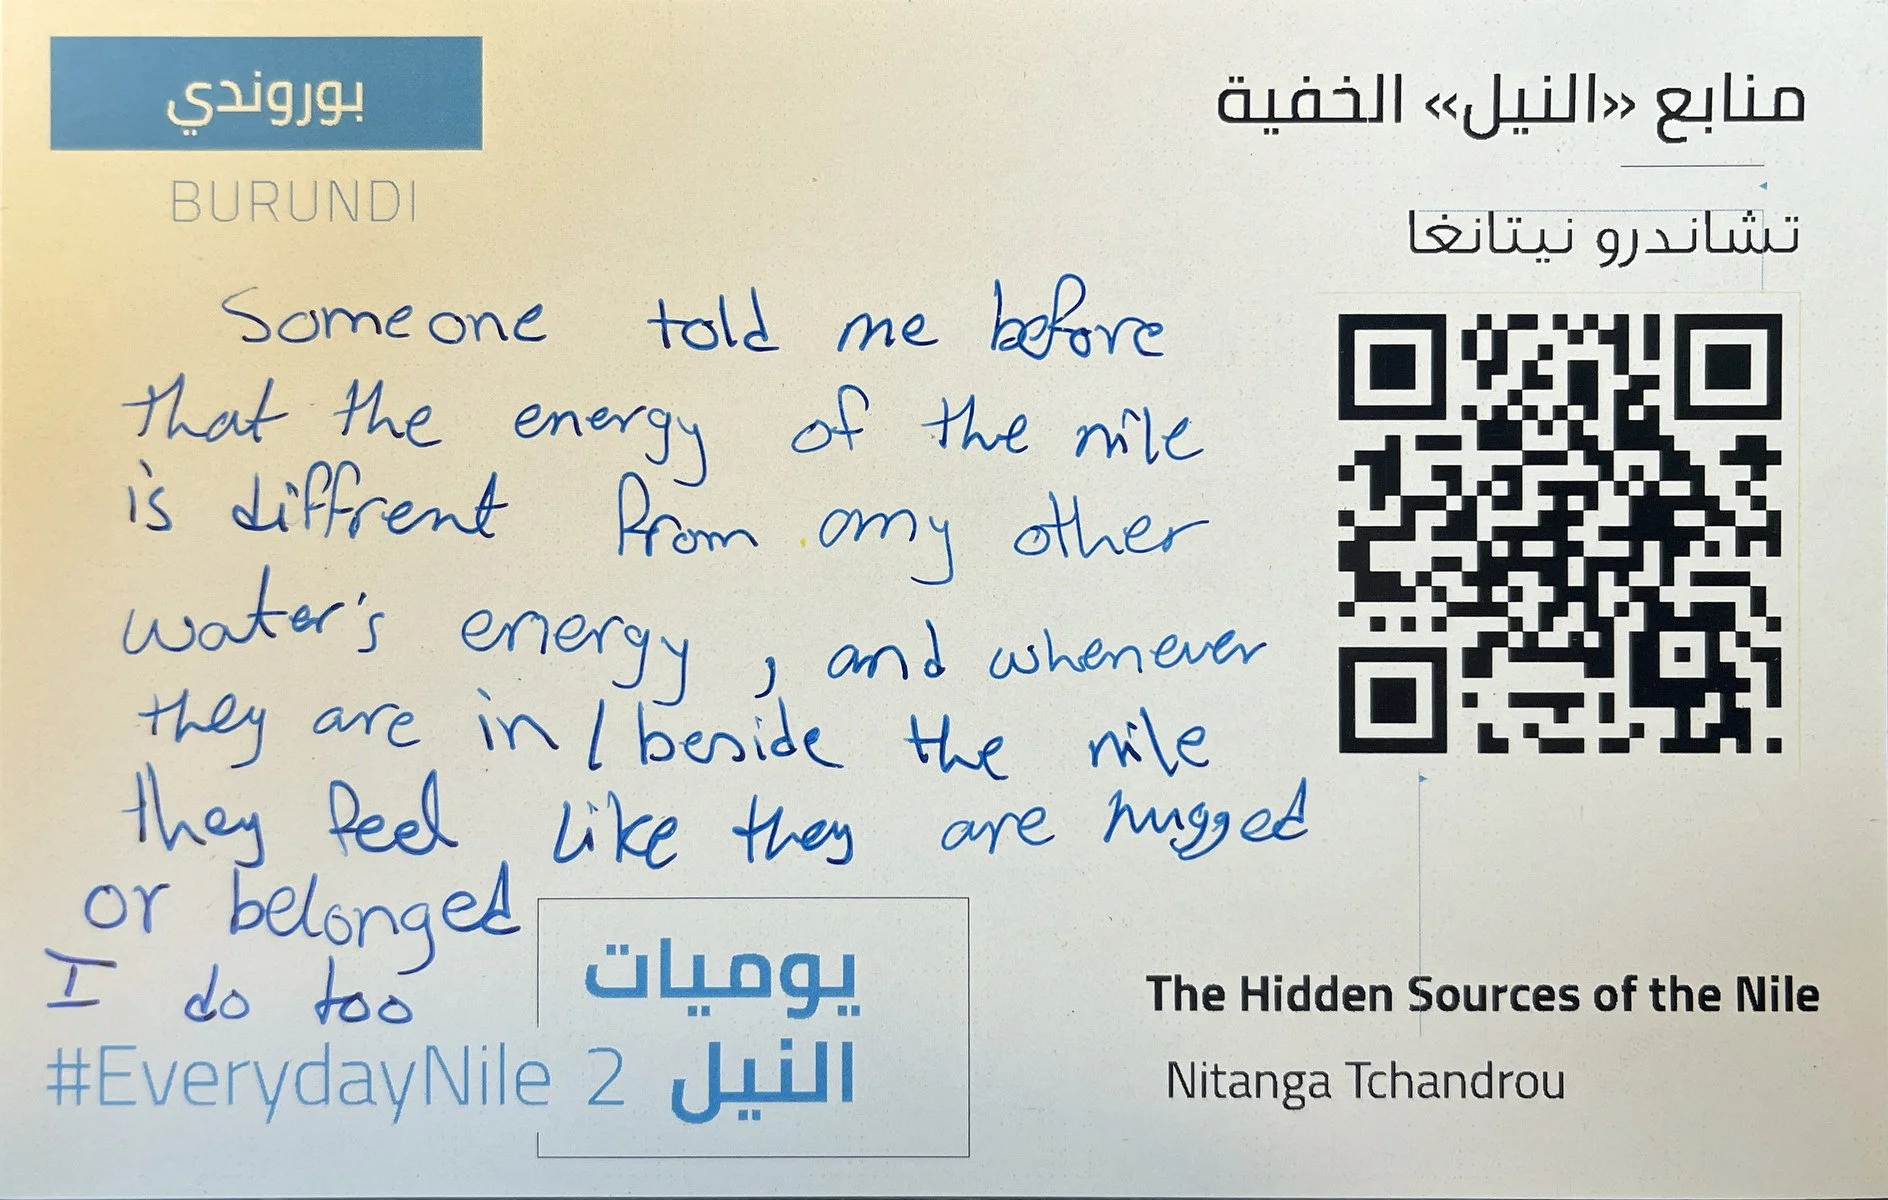 بوروندي
BURUNDI
منابع «النيل» الخفية
تشاندرو نيتانغا
Someone told me before
that the energy of the nile
is diffrent from any other
water's energy, and whenever
they are in / beside the nile
they feel like they are hugged
or belonged
I do too
يوميات
النيل
#EverydayNile 2
The Hidden Sources of the Nile
Nitanga Tchandrou